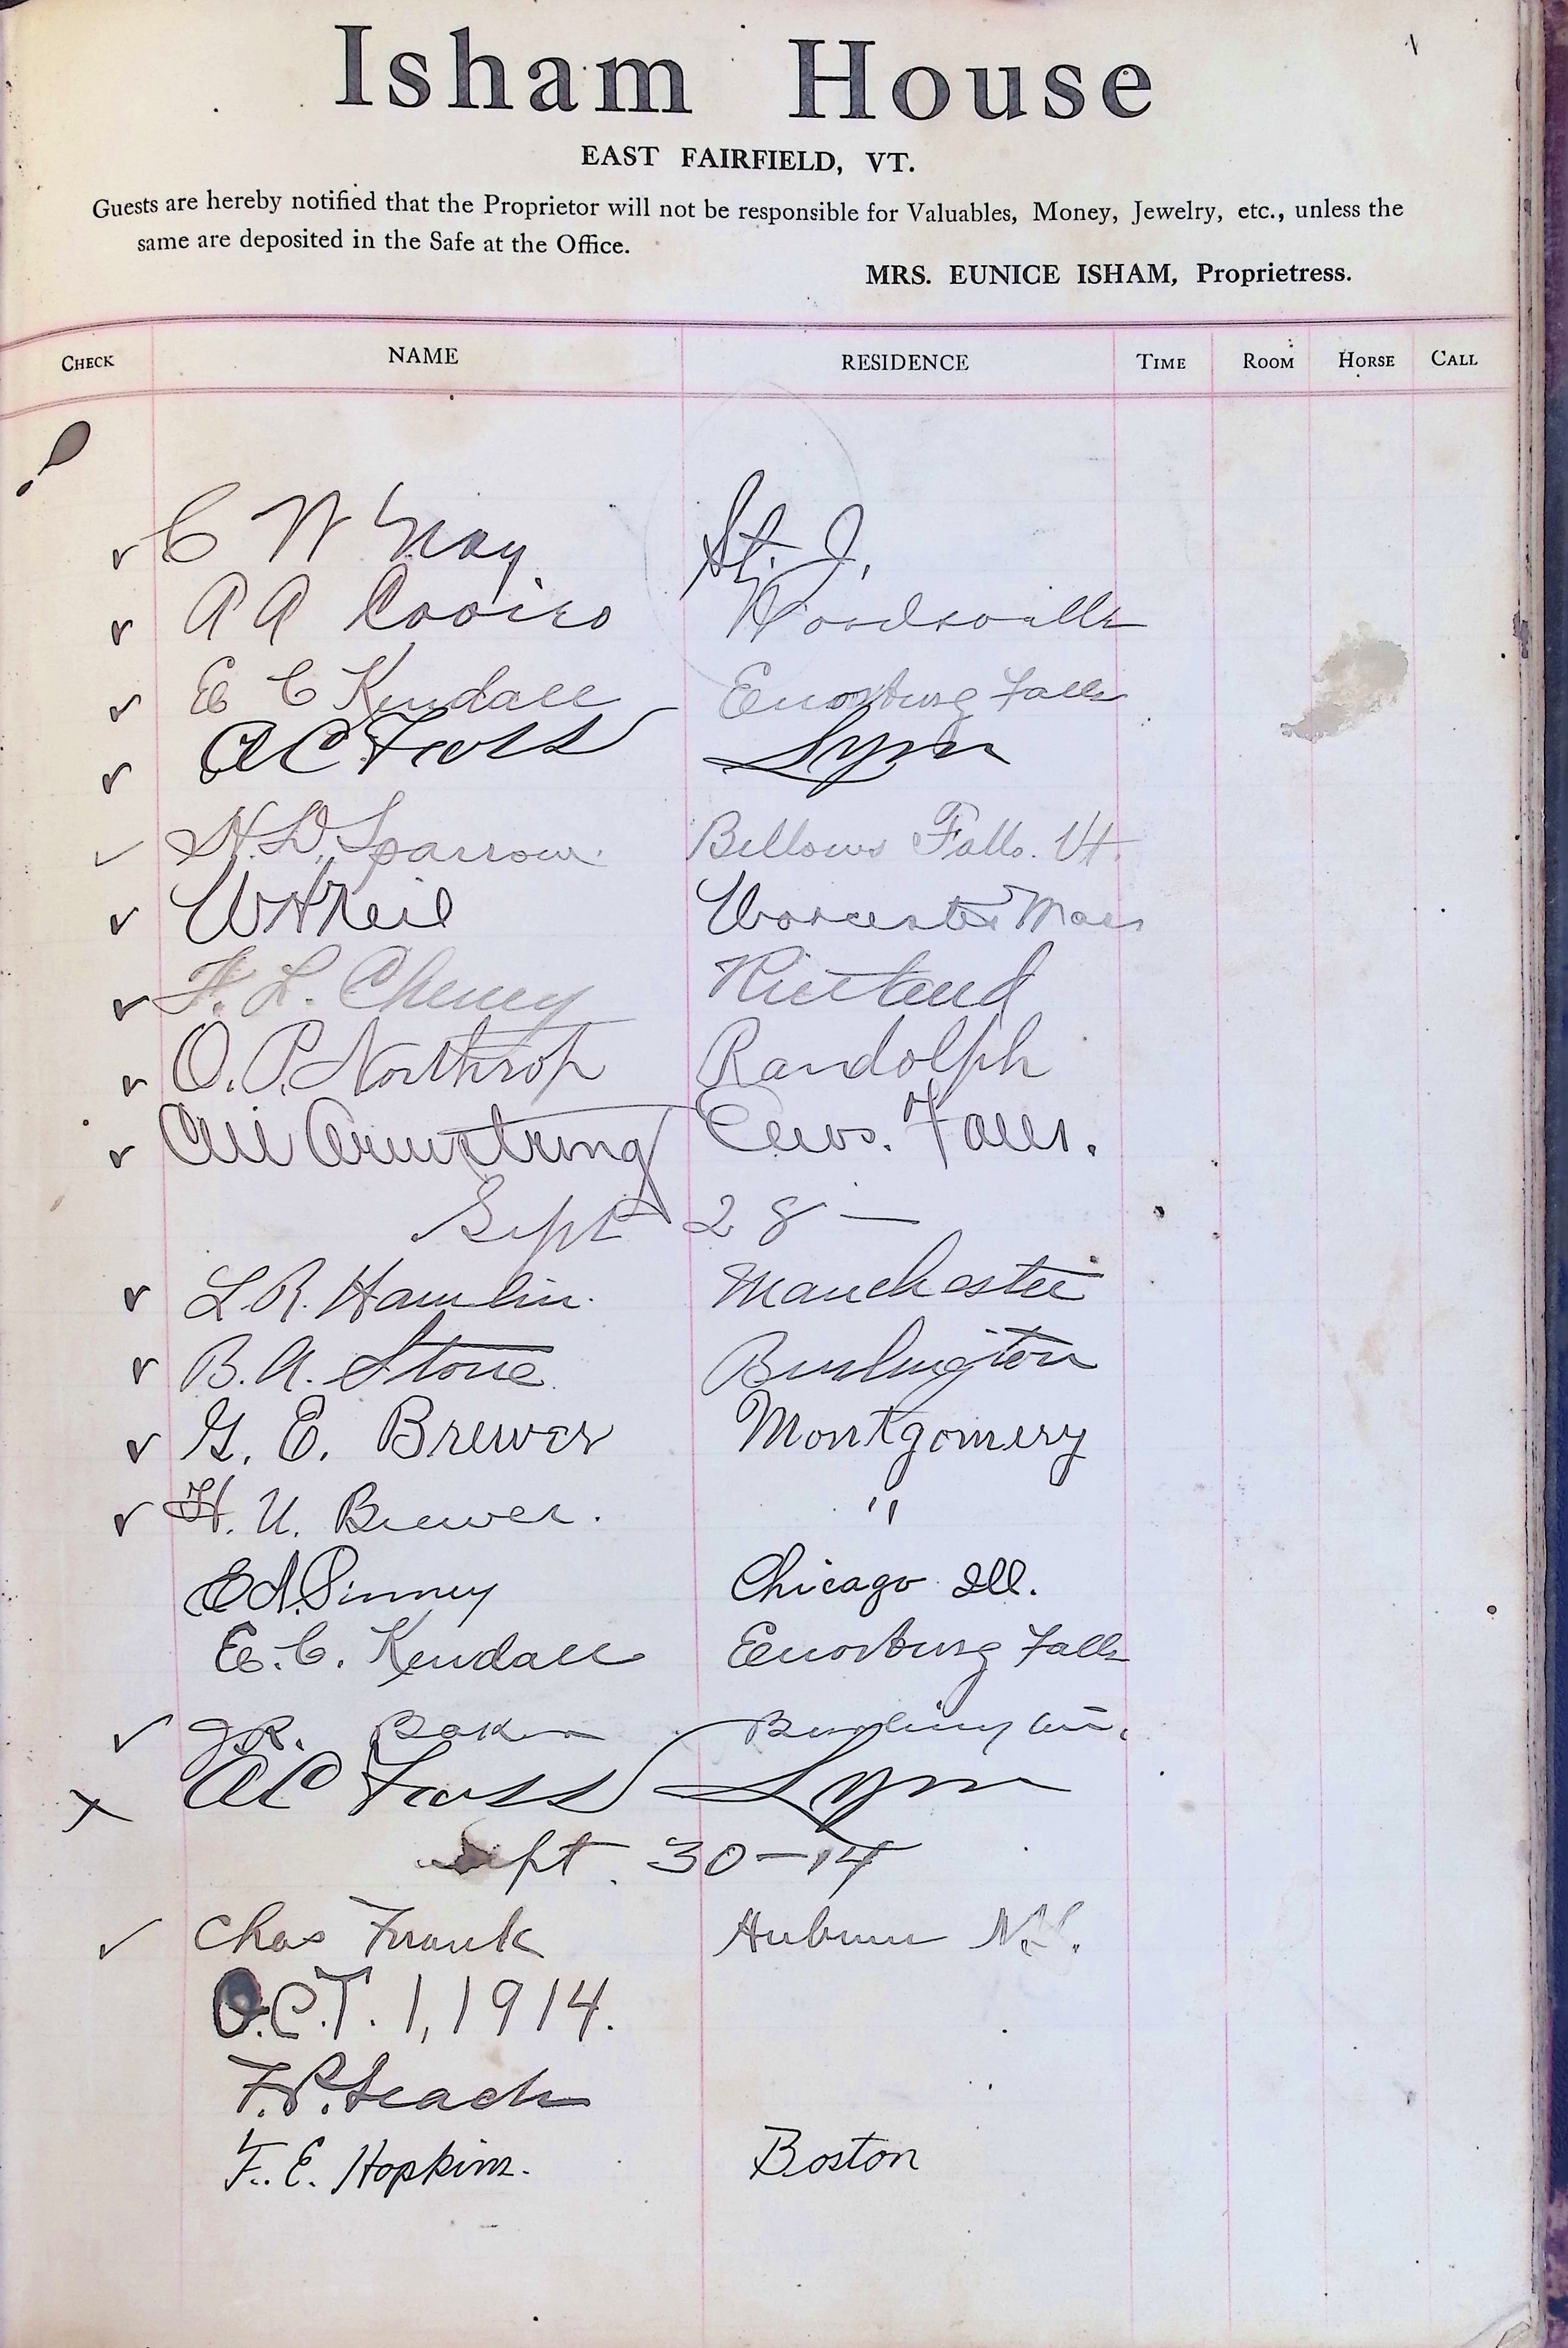 Isham House
EAST FAIRFIELD, VT.
Guests are hereby notified that the Proprietor will not be responsible for Valuables, Money, Jewelry, etc., unless the
same are deposited in the Safe at the Office.
MRS. EUNICE ISHAM, Proprietress.
CHECK NAME RESIDENCE TIME ROOM HORSE CALL
C W St. J.
A A Woodsville
E C Kendall Enosburg Falls
A C Foss Lynn
H. D. Sparrow. Bellows Falls. Vt.
Worcester Mass
F. L. Cheney Rutland
O. P. Northrop Randolph
Armstrong Enos. Falls.
Sept 28 —
L. R. Hamlin. Manchester
B. A. Stone. Burlington
G. E. Brewer Montgomery
H. U. Brewer. "
Ed. Pinney Chicago Ill.
E. C. Kendall Enosburg Falls
J. R. Baker Burlington.
A C Foss Lynn
Sept. 30-14
Chas Frank Auburn N.Y.
O.C.T. 1, 1914.
F. P. Leach
F. E. Hopkins. Boston